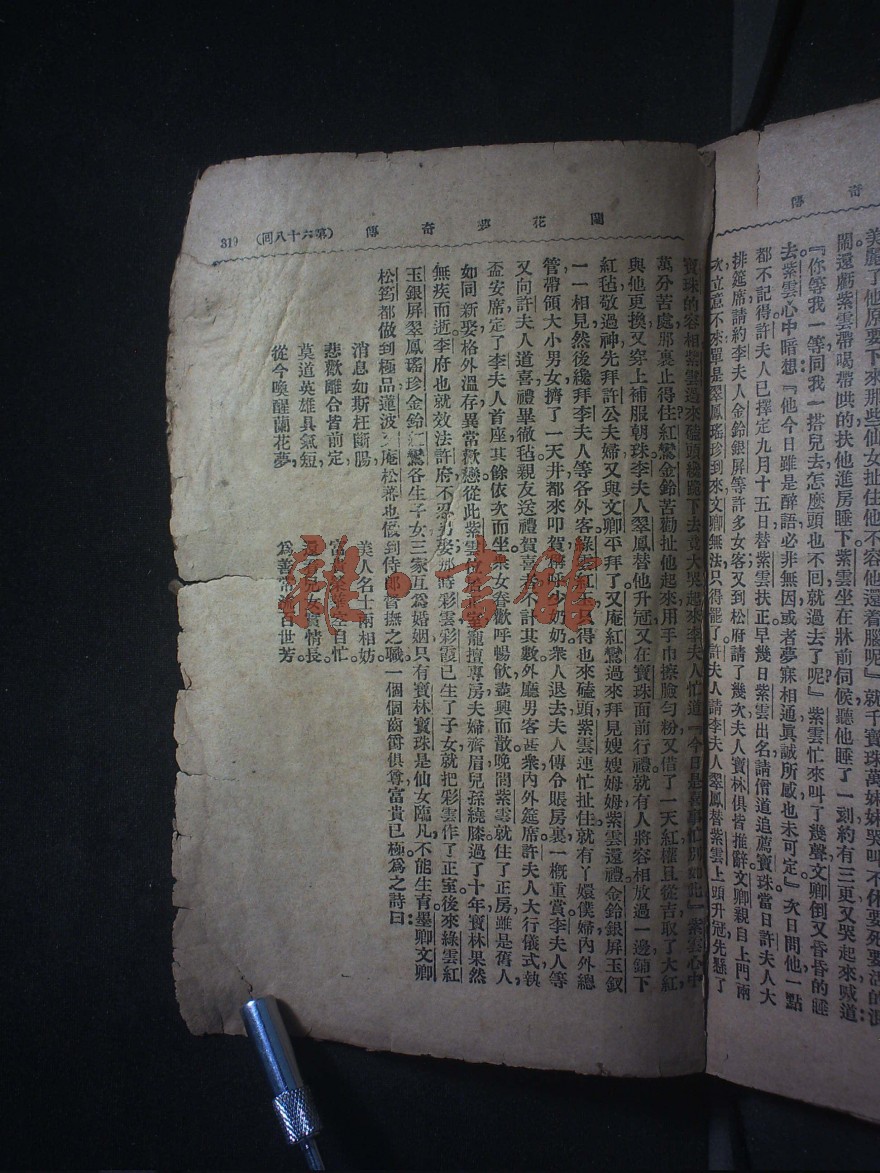 奇傳
美麗了他原要下來那些仙女扯住他不容他還着腦呢』就千寶珠萬妹妹哭叫不休要死要活的混
鬧還虧紫雲帶喝帶哄的扶他進房睡下紫雲坐在牀前伺候聽他睡了一刻約有三更又哭起來喊道:
『你等我一等同我一搭兒去怎麼頭也不回就過去了呢』紫雲忙來叫了幾聲文卿倒又昏昏的睡
去紫雲心中暗想『他今日雖是醉語必非無因或者夢寐相通眞誠所感也未可定』次日問他一點
都不記得許夫人已擇定九月十五日替紫雲扶正早幾日紫雲出名請僧道追薦寶珠當日許夫人大
排筵席請約李夫人金鈴銀屏等許多女客又到松府請了幾次夫人寶林俱皆推辭文卿親自上門兩
次立意不來單是翠鳳瑤珍到來文卿無法只得罷了許夫人請李夫人翠鳳替紫雲上頭升冠先懸了
蘭花夢奇傳 (第六十八回) 319
寶珠的容相紫雲過來磕頭纔跪下去竟大哭起來李夫人忙道『今日是喜事忙別如此』紫雲心中
萬分苦處那裏止得住紅鸞金鈴苦勸扯他起來用手巾擦臉勻粉又借了一天紅權且從吉取了大紅
與他更換又穿上補服朝珠李夫人翠鳳替他升冠又在寶珠面前行禮就有人將容相放過一邊鋪下
紅毡敬過神先拜許公夫婦又與文卿平拜了又庵紅鸞過來拜見嫂嫂姆姆紫雲還禮金鈴銀屏玉釵
一一相見然後纔拜李夫人等各外客綠雲紅玉只得也來磕頭紫雲連忙扯住就有丫嬛僕婦內外總
管帶領大小男女擠了一天井都來叩賀稱呼少奶奶衆人退去夫人傳令賬房裏一槪重賞李夫人等
又向許夫人道喜禮畢徹毡親友送禮賀喜者不計其數外廳男客甚衆內外筵席許夫人大行儀式執
盃安席定了李夫人首座其餘依次而坐衆女眷歡呼暢飮盡興而散晚間紫雲就住了正房雖是舊人,
如同新娶格外溫存異常歡戀從此紫雲 寵擅專房夫婦齊眉兒孫繞膝過了十年寶林果然
無疾而逝李府也就效法許府不忍另娶那時彩雲彩霞已生了子女就把彩雲作了正室後來綠雲紅
玉銀屏翠鳳瑤珍金鈴紅鸞各生子女三家互爲婚姻只有寶林寶珠是仙女臨凡不能生育墨卿文卿
松筠都做到極品蓮波又庵松蕃也做到侍郞督撫之職一個個齒爵俱尊富貴已極爲之詩曰:
消息如斯枉斷腸, 美人名士兩相妨。
悲歡離合皆前定, 富 自忙。
莫道英雄具氣短, 兒女實情長。
從今喚醒蘭花夢, 爲善常 百世芳。
雜·書館